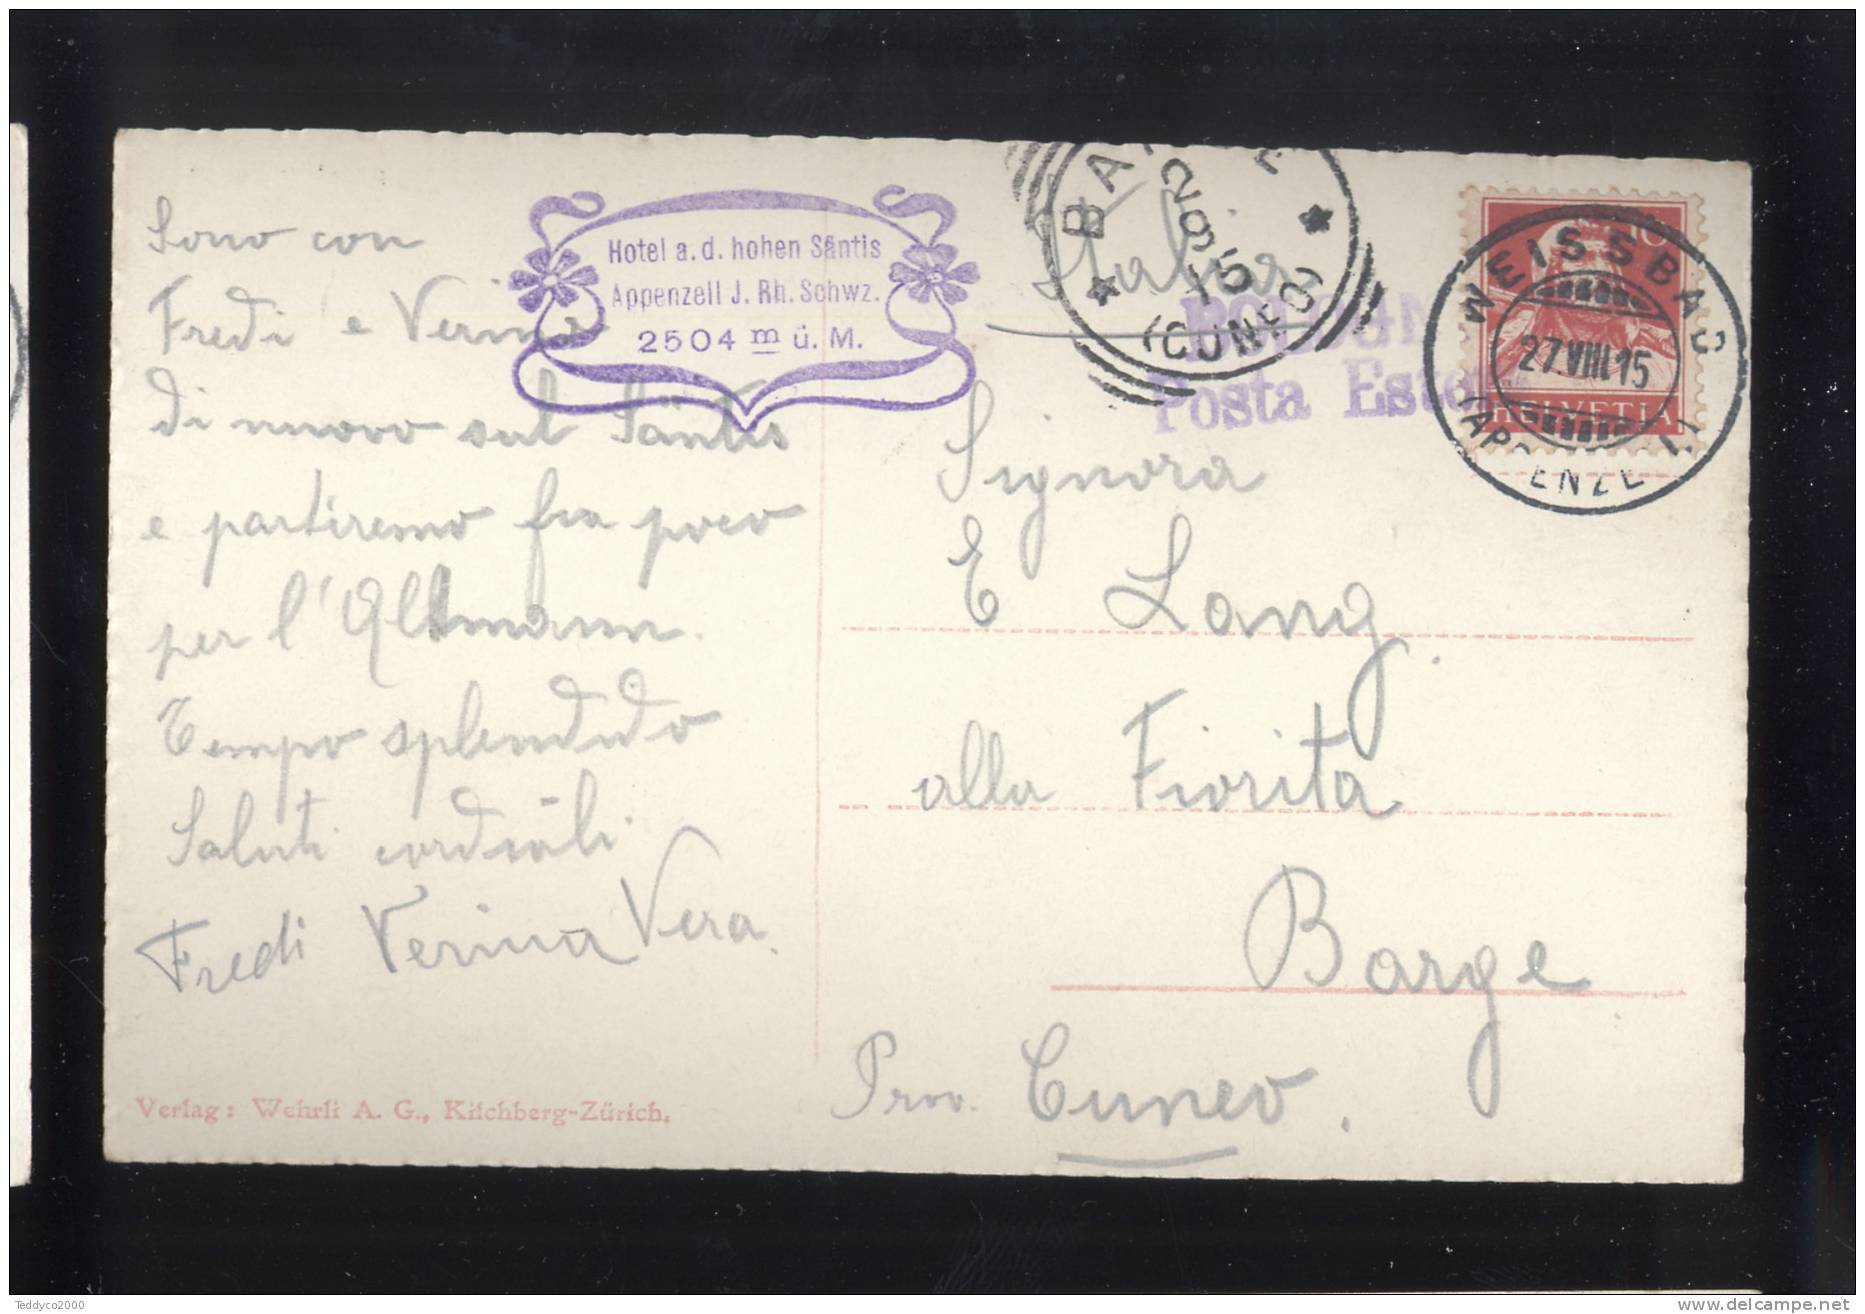 Sono con
Fredi e Verina
di nuovo sul Säntis
e partiremo fra poco
per l'Altmann.
Tempo splendido
Saluti cordiali
Fredi Verina Vera.
Verlag: Wehrli A. G., Kilchberg-Zürich.
Hotel a.d. hohen Säntis
Appenzell J. Rh. Schwz.
2504 m ü. M.
Italia
Signora
E Lang
alla Fiorita
Barge
Prov. Cuneo.
(CUNEO)
Posta Este
10
HELVETIA
WEISSBAD
27.VIII.15
(APPENZELL)
Teddyco2000
www.delcampe.net